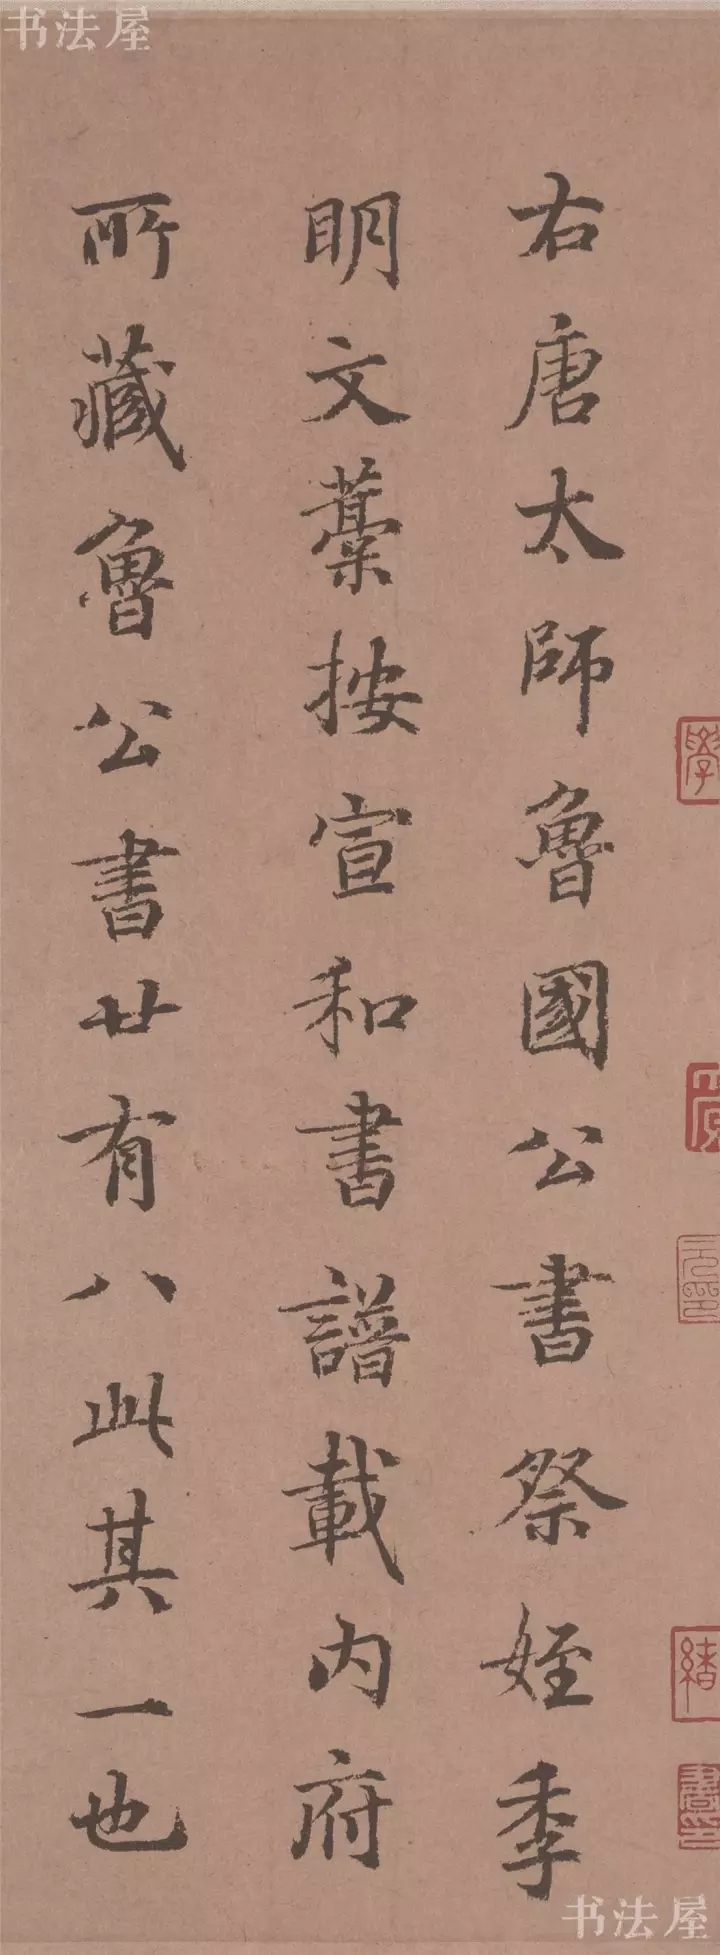 书法屋
右唐太師魯國公書祭姪季
明文藁按宣和書譜載内府
所藏魯公書廿有八此其一也
书法屋